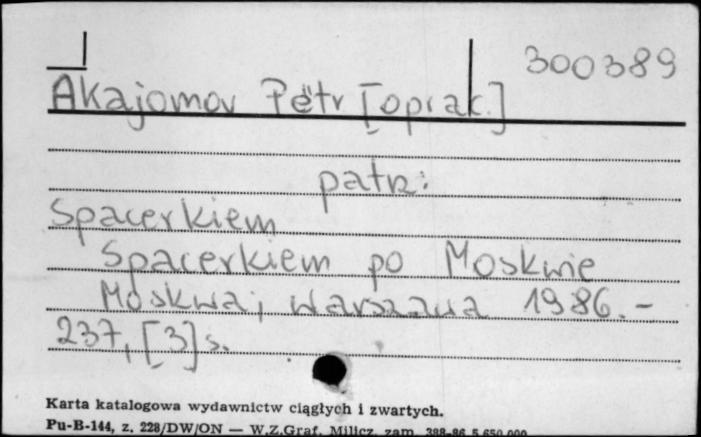 300389
Akajomov Pëtr [oprac.]
patrz:
Spacerkiem
Spacerkiem po Moskwie
Moskwa; Warszawa 1986. -
237, [3] s.
Karta katalogowa wydawnictw ciągłych i zwartych.
Pu-B-144, z. 228/DW/ON — W.Z.Graf. Milicz, zam. 388-86 5.650.000